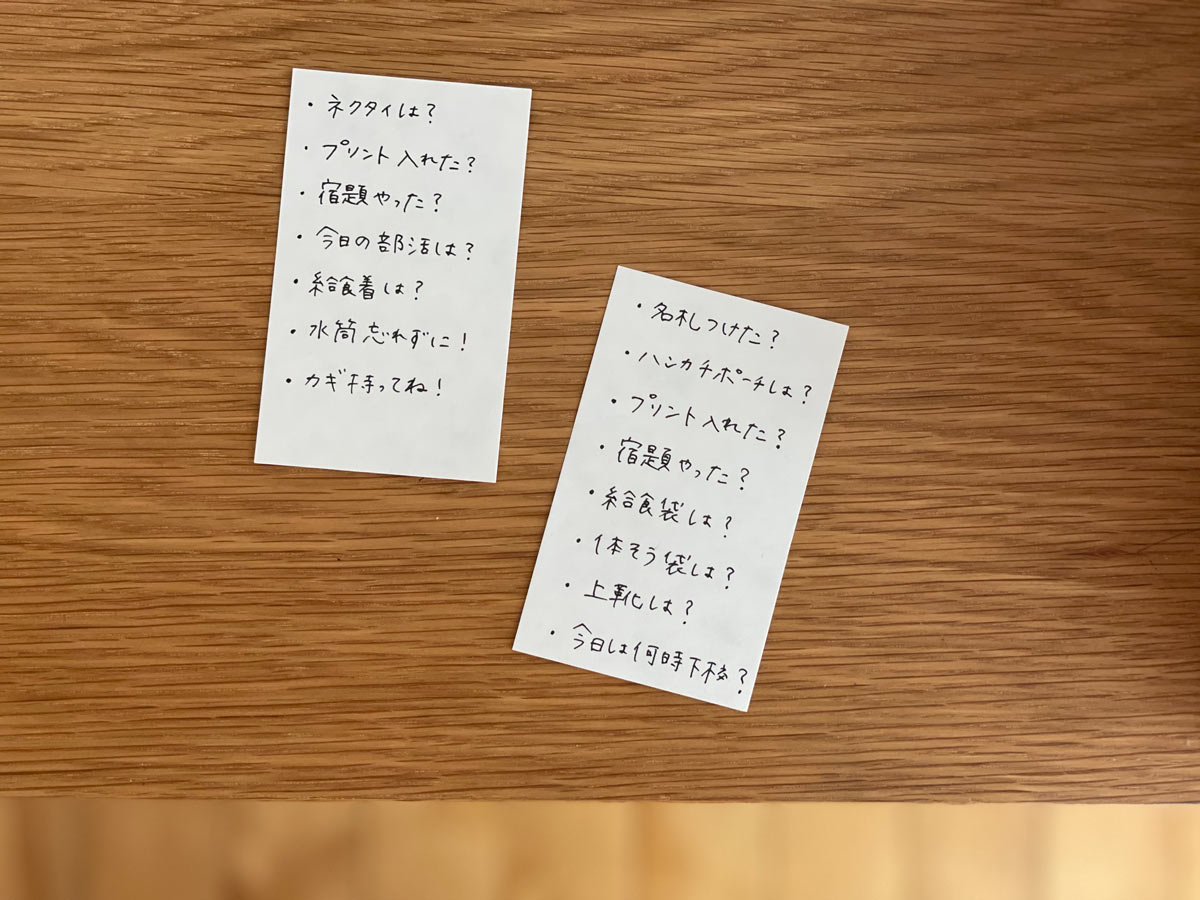 ・ネクタイは?
・プリント入れた?
・宿題やった?
・今日の部活は?
・給食着は?
・水筒忘れずに!
・カギ持ってね!
・名札つけた?
・ハンカチポーチは?
・プリント入れた?
・宿題やった?
・給食袋は?
・体そう袋は?
・上靴は?
・今日は何時下校?